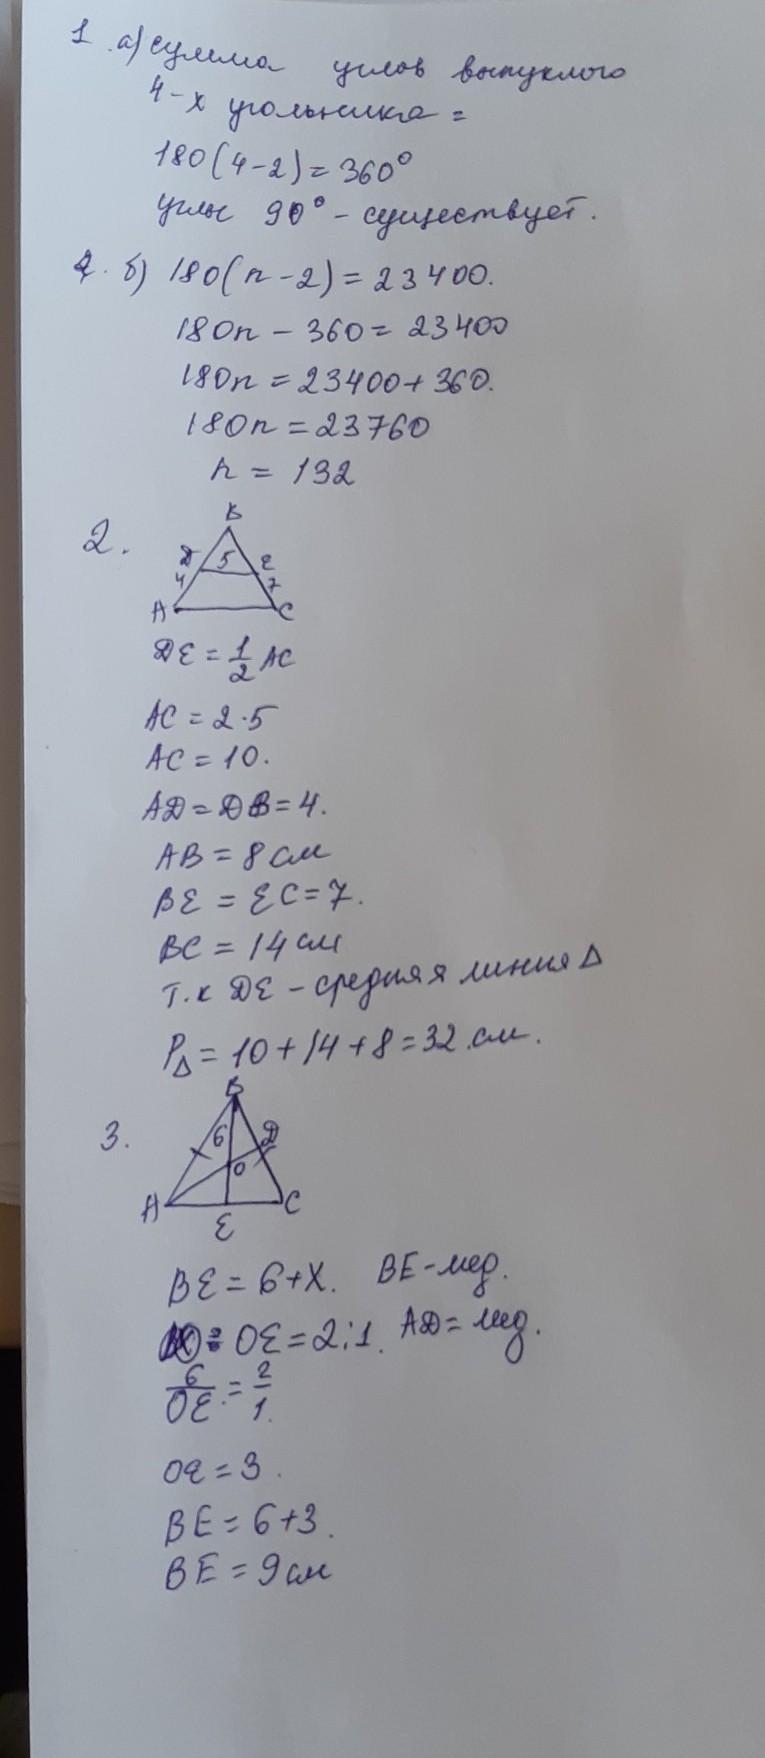 1. а) сумма углов выпуклого
4-х угольника =
180(4-2)=360°
углы 90° - существует.
1. б) 180(n-2)=23400.
180n - 360 = 23400
180n = 23400+360.
180n = 23760
n = 132
2.
B
D 5 E
4 7
A C
DE = 1/2 AC
AC = 2·5
AC = 10.
AD = DB = 4.
AB = 8 см
BE = EC = 7.
BC = 14 см
т.к DE - средняя линия Δ
PΔ = 10+14+8=32 см.
3.
B
6 D
O
A C
E
BE = 6+X. BE-мед.
OE = 2:1. AD = мед.
6/OE = 2/1.
OE = 3.
BE = 6+3.
BE = 9 см